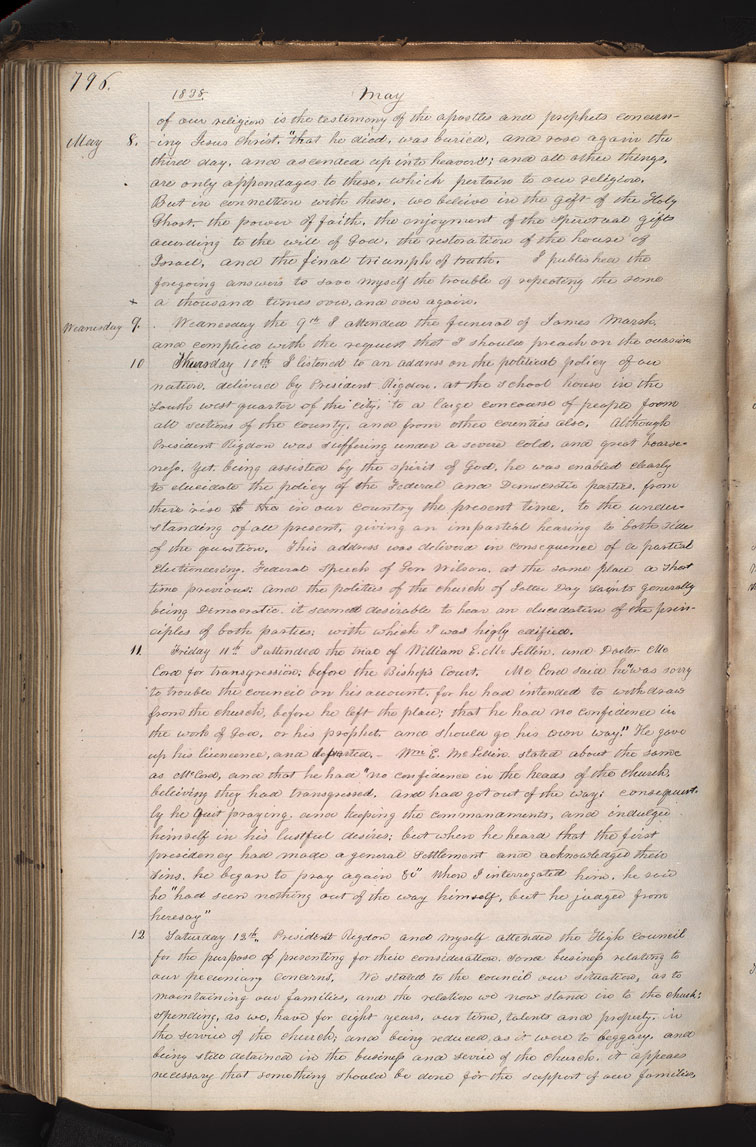 796.
1838
May
of our religion is the testimony of the apostles and prophets concern-
May 8. -ing Jesus Christ, "that he died, was buried, and rose again the
third day, and ascended up into heaven"; and all other things,
are only appendages to these, which pertain to our religion.
But in connection with these, we believe in the gift of the Holy
Ghost, the power of faith, the enjoyment of the spiritual gifts
according to the will of God, the restoration of the house of
Israel, and the final triumph of truth. I published the
foregoing answers to save myself the trouble of repeating the same
a thousand times over, and over again.
Wednesday 9. Wednesday the 9th I attended the funeral of James Marsh,
and complied with the request that I should preach on the occasion
10 Thursday 10th I listened to an address on the political policy of our
nation, delivered by President Rigdon, at the School house in the
South west quarter of the city, to a large concourse of people from
all sections of the county, and from other counties also. Although
President Rigdon was suffering under a severe cold, and great hoarse-
ness, yet, being assisted by the spirit of God, he was enabled clearly
to elucidate the policy of the Federal and Democratic parties, from
their rise in our country the present time, to the under-
standing of all present, giving an impartial hearing to both side
of the question. This address was delivered in consequence of a partial
Electioneering, Federal Speech of Gen Wilson, at the same place a short
time previous; and the politics of the church of Latter Day Saints generally
being Democratic, it seemed desirable to hear an elucidation of the prin-
ciples of both parties, with which I was higly edified.
11 Friday 11th I attended the trial of William E. Mc Lellin, and Doctor Mc
Cord for transgression, before the Bishop's Court. Mc Cord said he "was sorry
to trouble the council on his account, for he had intended to withdraw
from the church, before he left the place; that he had no confidence in
the work of God, or his prophet, and should go his own way." He gave
up his licencence, and departed. - Wm E. Mc Lellin stated about the same
as Mc Cord, and that he had "no confidence in the heads of the Church,
believing they had transgressed, and had got out of the way; consequent-
ly he Quit praying, and keeping the commandments, and indulged
himself in his lustful desires; but when he heard that the first
presidency had made a general settlement and acknowledged their
sins, he began to pray again &c" When I interrogated him, he said
he "had seen nothing out of the way himself, but he judged from
heresay"
12 Saturday 12th. President Rigdon and myself attended the High Council
for the purpose of presenting for their consideration some business relating to
our pecuniary concerns. We stated to the council our situation, as to
maintaining our families, and the relation we now stand in to the church;
spending, as we, have for eight years, our time, talents and property, in
the service of the church; and being reduced, as it were to beggary, and
being still detained in the business and service of the church, it appears
necessary that something should be done for the support of our families,